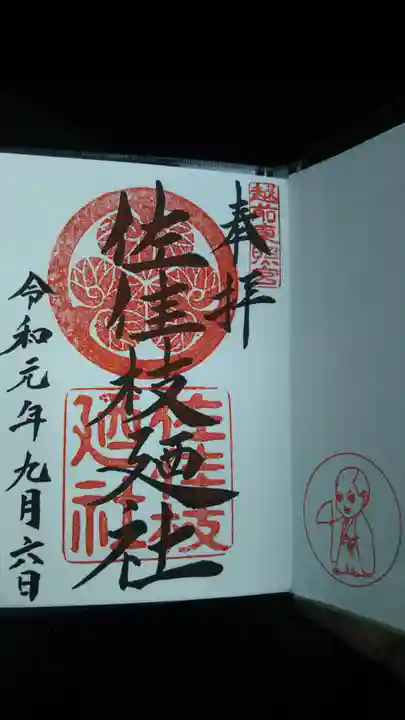 越前東照宮
奉拝
佐佳枝廼社
佐佳枝
廼社
令和元年九月六日